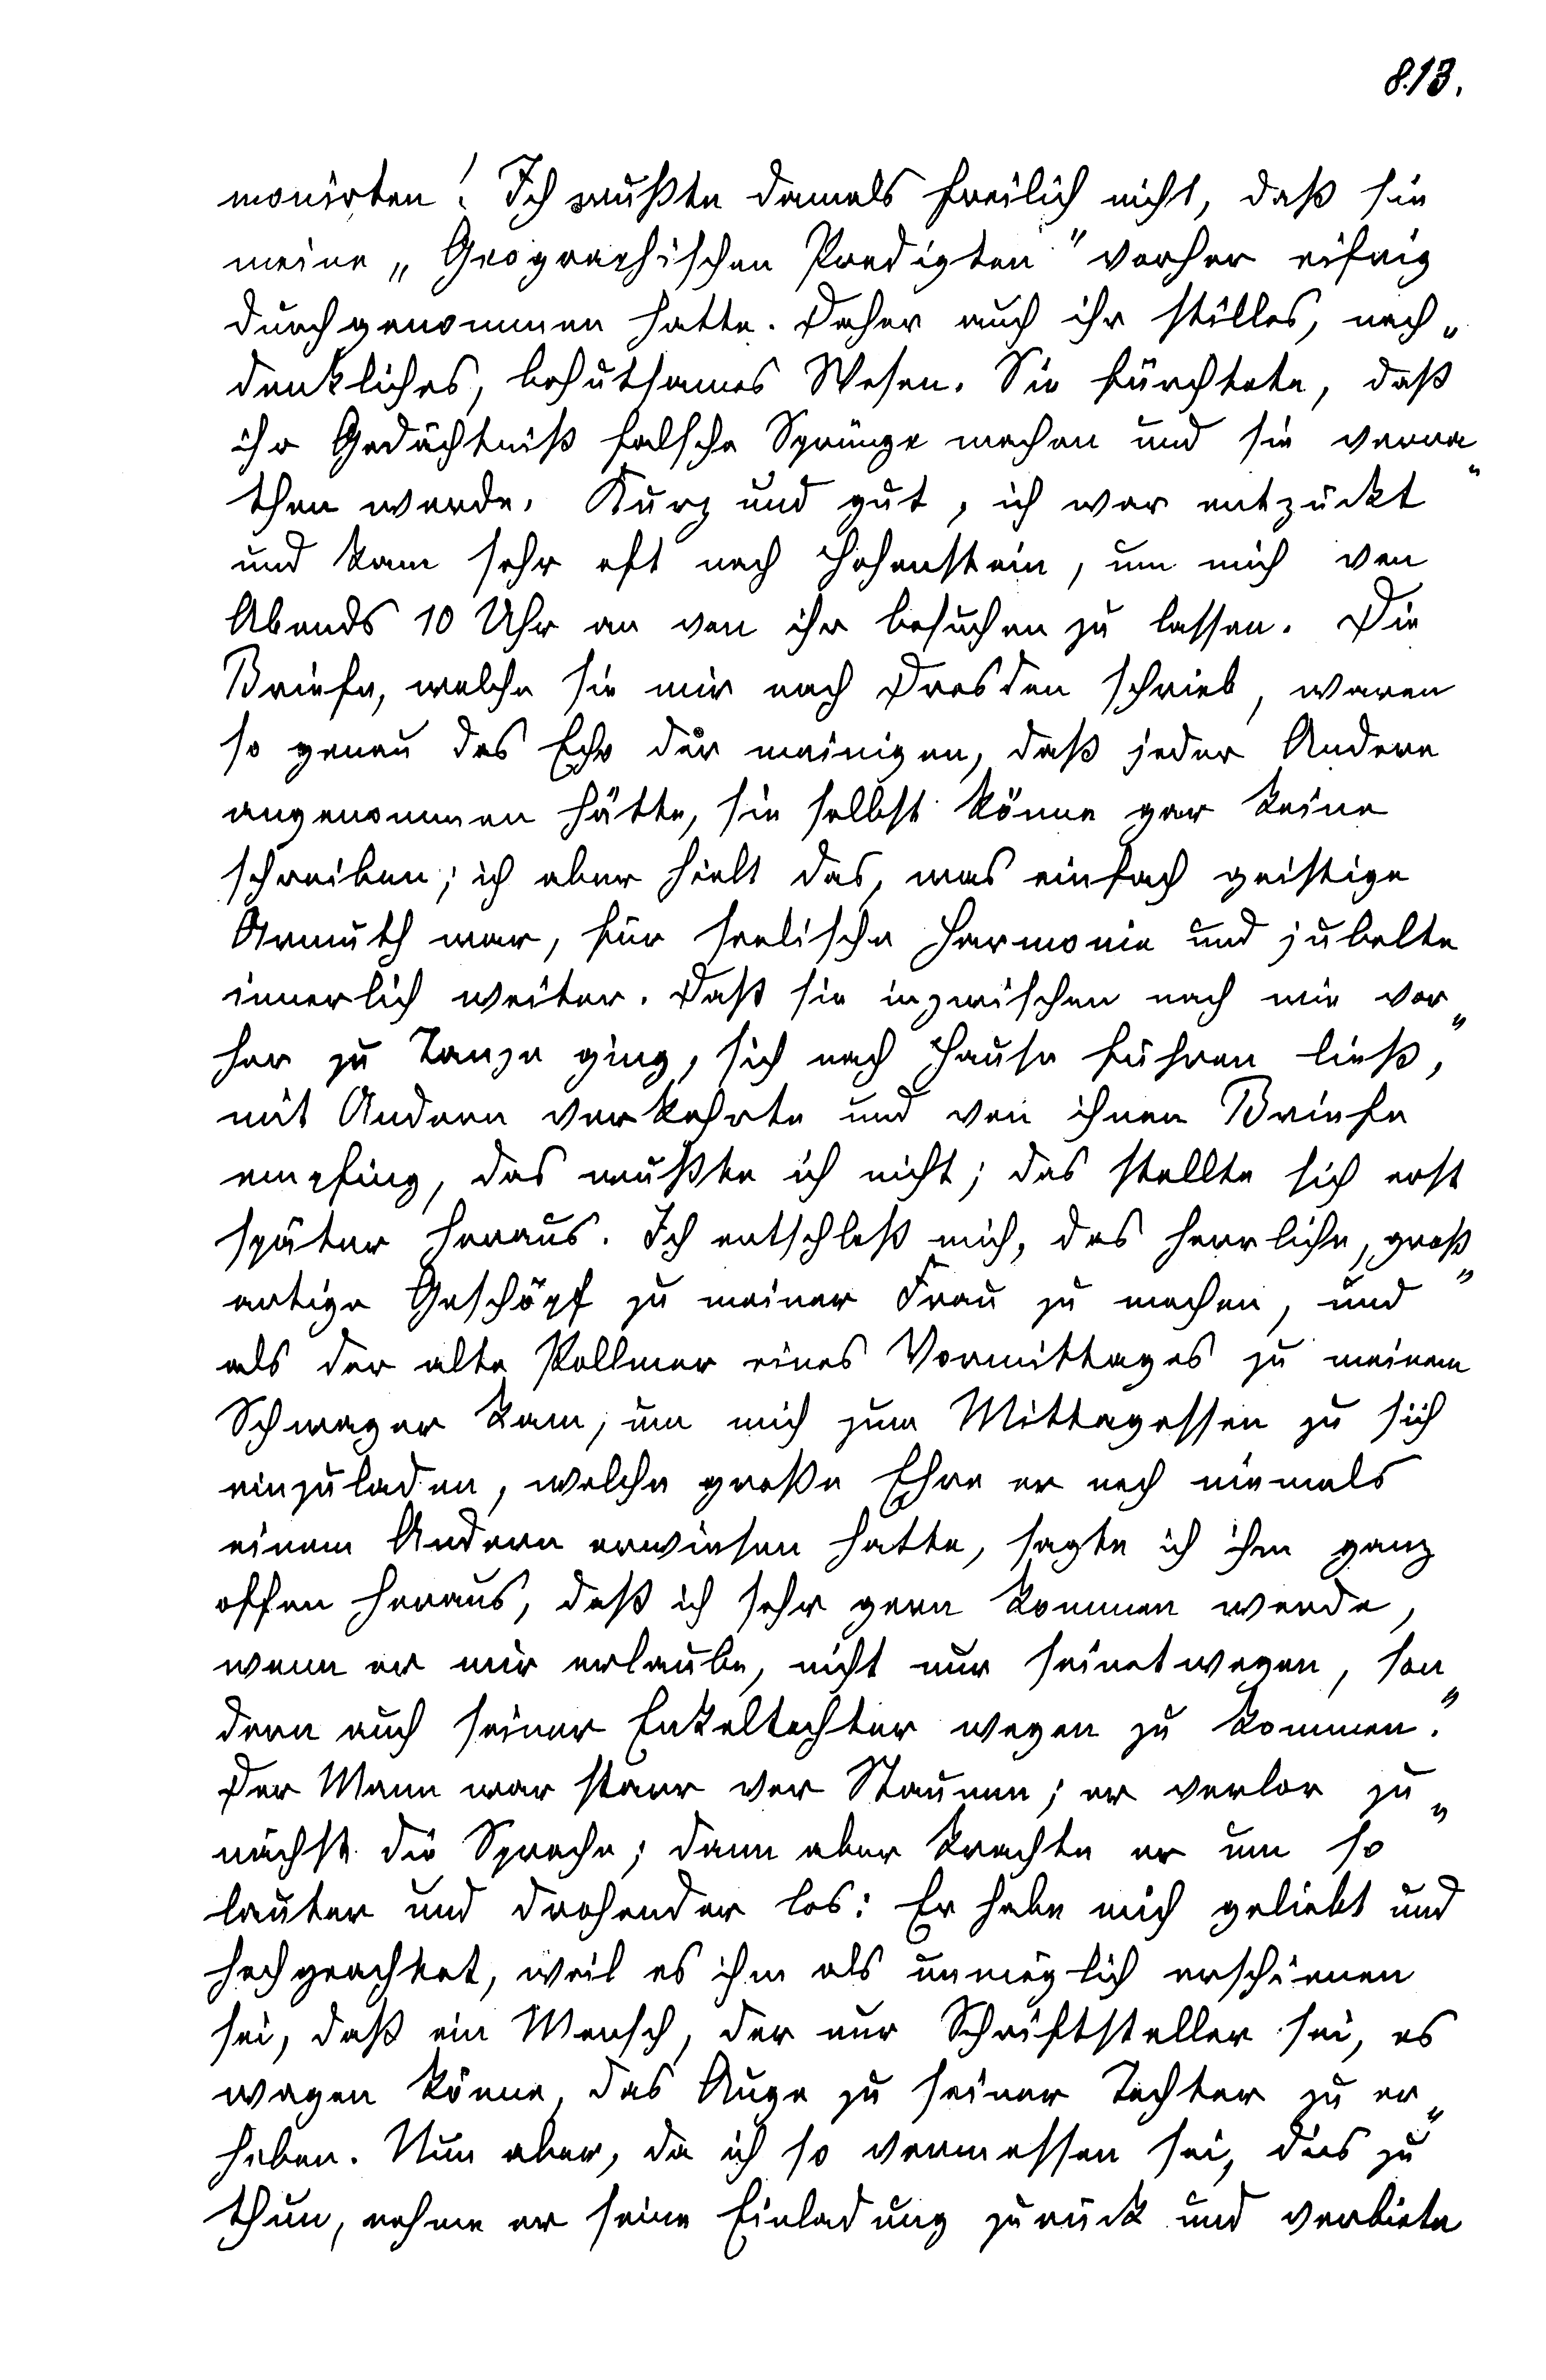 813.
monirten! Ich wußte damals freilich nicht, daß sie
meine „Geographischen Predigten" vorher eifrig
durchgenommen hatte. Daher auch ihr stilles, nach„
denkliches, behutsames Wesen. Sie fürchtete, daß
ihr Gedächtniß falsche Sprünge machen und sie verra„
then werde. Kurz und gut, ich war entzückt
und kam sehr oft nach Hohenstein, um mich von
Abends 10 Uhr an von ihr besuchen zu lassen. Die
Briefe, welche sie mir nach Dresden schrieb, waren
so genau das Echo der meinigen, daß jeder Andere
angenommen hätte, sie selbst könne gar keine
schreiben; ich aber hielt das, was einfach geistige
Armuth war, für seelische Harmonie und jubelte
innerlich weiter. Daß sie inzwischen nach wie vor„
her zu Tanze ging, sich nach Hause führen ließ,
mit Andern verkehrte und von ihnen Briefe
empfing, das wußte ich nicht; das stellte sich erst
später heraus. Ich entschloß mich, das herrliche, groß„
artige Geschöpf zu meiner Frau zu machen, und
als der alte Pollmer eines Vormittages zu meinem
Schwager kam, um mich zum Mittagessen zu sich
einzuladen, welche große Ehre er noch niemals
einem Andern erwiesen hatte, sagte ich ihm ganz
offen heraus, daß ich sehr gern kommen werde,
wenn er mir erlaube, nicht nur seinetwegen, son„
dern auch seiner Enkeltochter wegen zu kommen.
Der Mann war starr vor Staunen; er verlor zu„
nächst die Sprache; dann aber krachte er um so
lauter und drohender los: Er habe mich geliebt und
hochgeachtet, weil es ihm als unmöglich erschienen
sei, daß ein Mensch, der nur Schriftsteller sei, es
wagen könne, das Auge zu seiner Tochter zu er„
heben. Nun aber, da ich so vermessen sei, dies zu
thun, nehme er seine Einladung zurück und verbiete